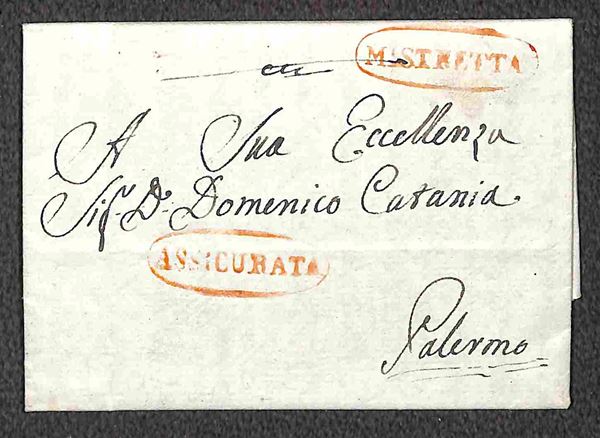 MISTRETTA
A Sua Eccellenza
Sig.r D. Domenico Catania
ASSICURATA
Palermo